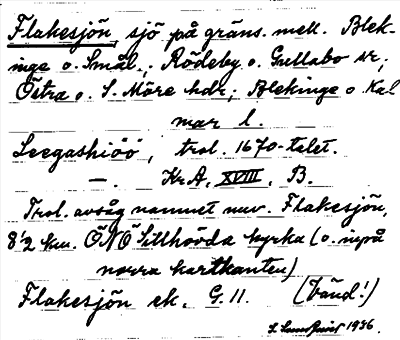 Flakesjön, sjö på gräns. mell. Blek-
inge o. Smål.; Rödeby o. Gullabo sr;
Östra o. S. Möre hdr; Blekinge o Kal
mar l.
Seegashiöö, trol. 1670-talet.
—. Kr.A. XVIII. B.
Trol. avsåg namnet nuv. Flakesjön,
8½ km. ÖNÖ Sillhövda kyrka (o. inpå
norra kartkanten)
Flakesjön ek. G. 11. (Länd!)
S. Lundquist 1936.